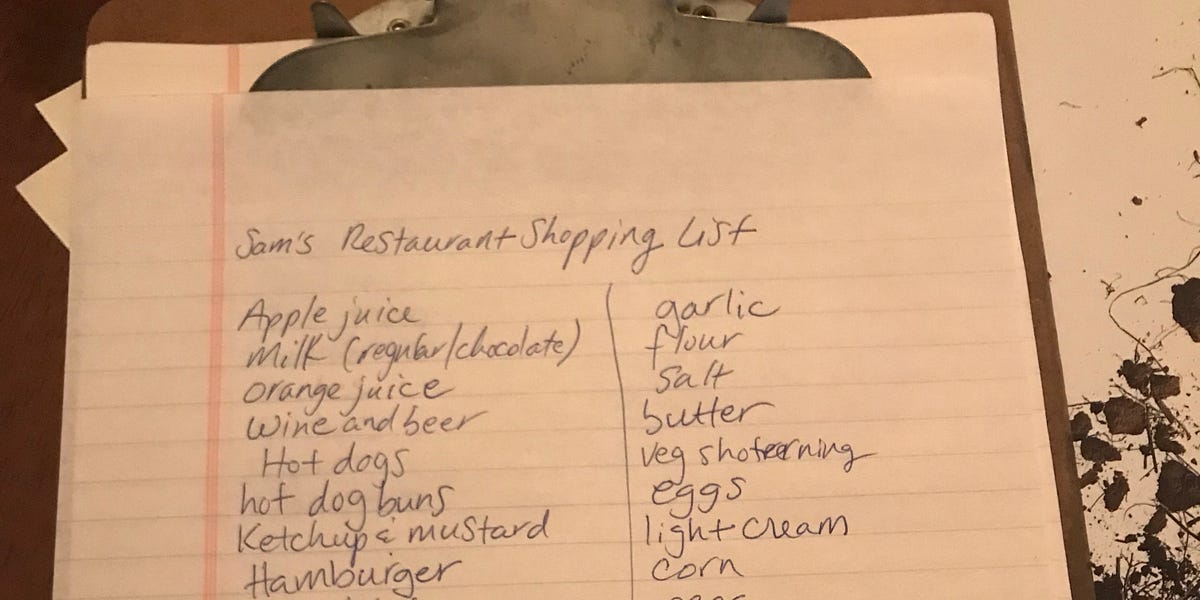 Sam's Restaurant Shopping List
Apple juice
Milk (regular/chocolate)
orange juice
Wine and beer
Hot dogs
hot dog buns
Ketchup & mustard
Hamburger
garlic
flour
salt
butter
veg shoteerning
eggs
light cream
corn